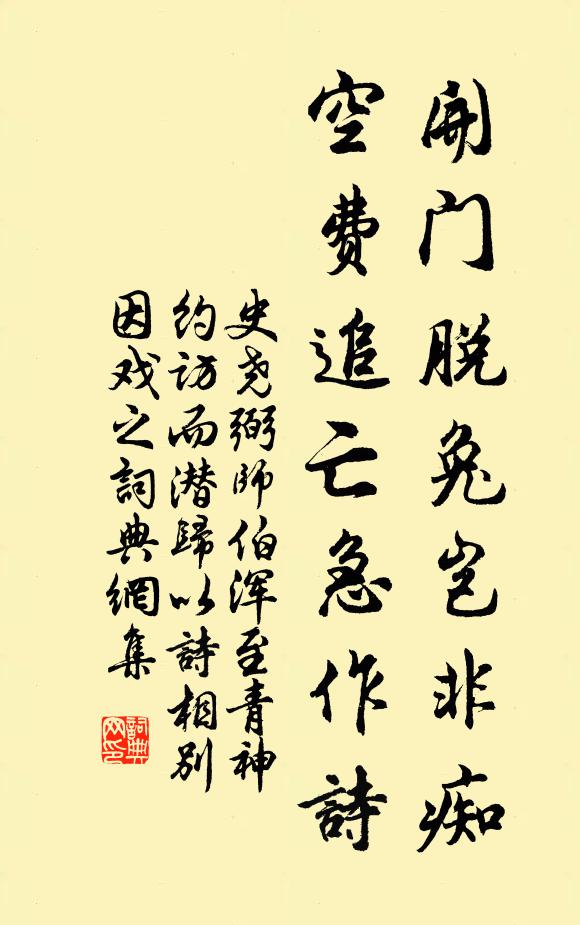 開门脱兔岂非痴
空费追亡急作詩
史尧弼師伯浑至青神
约访而潜歸以詩相别
因戏之詞典網集
詞典
网印